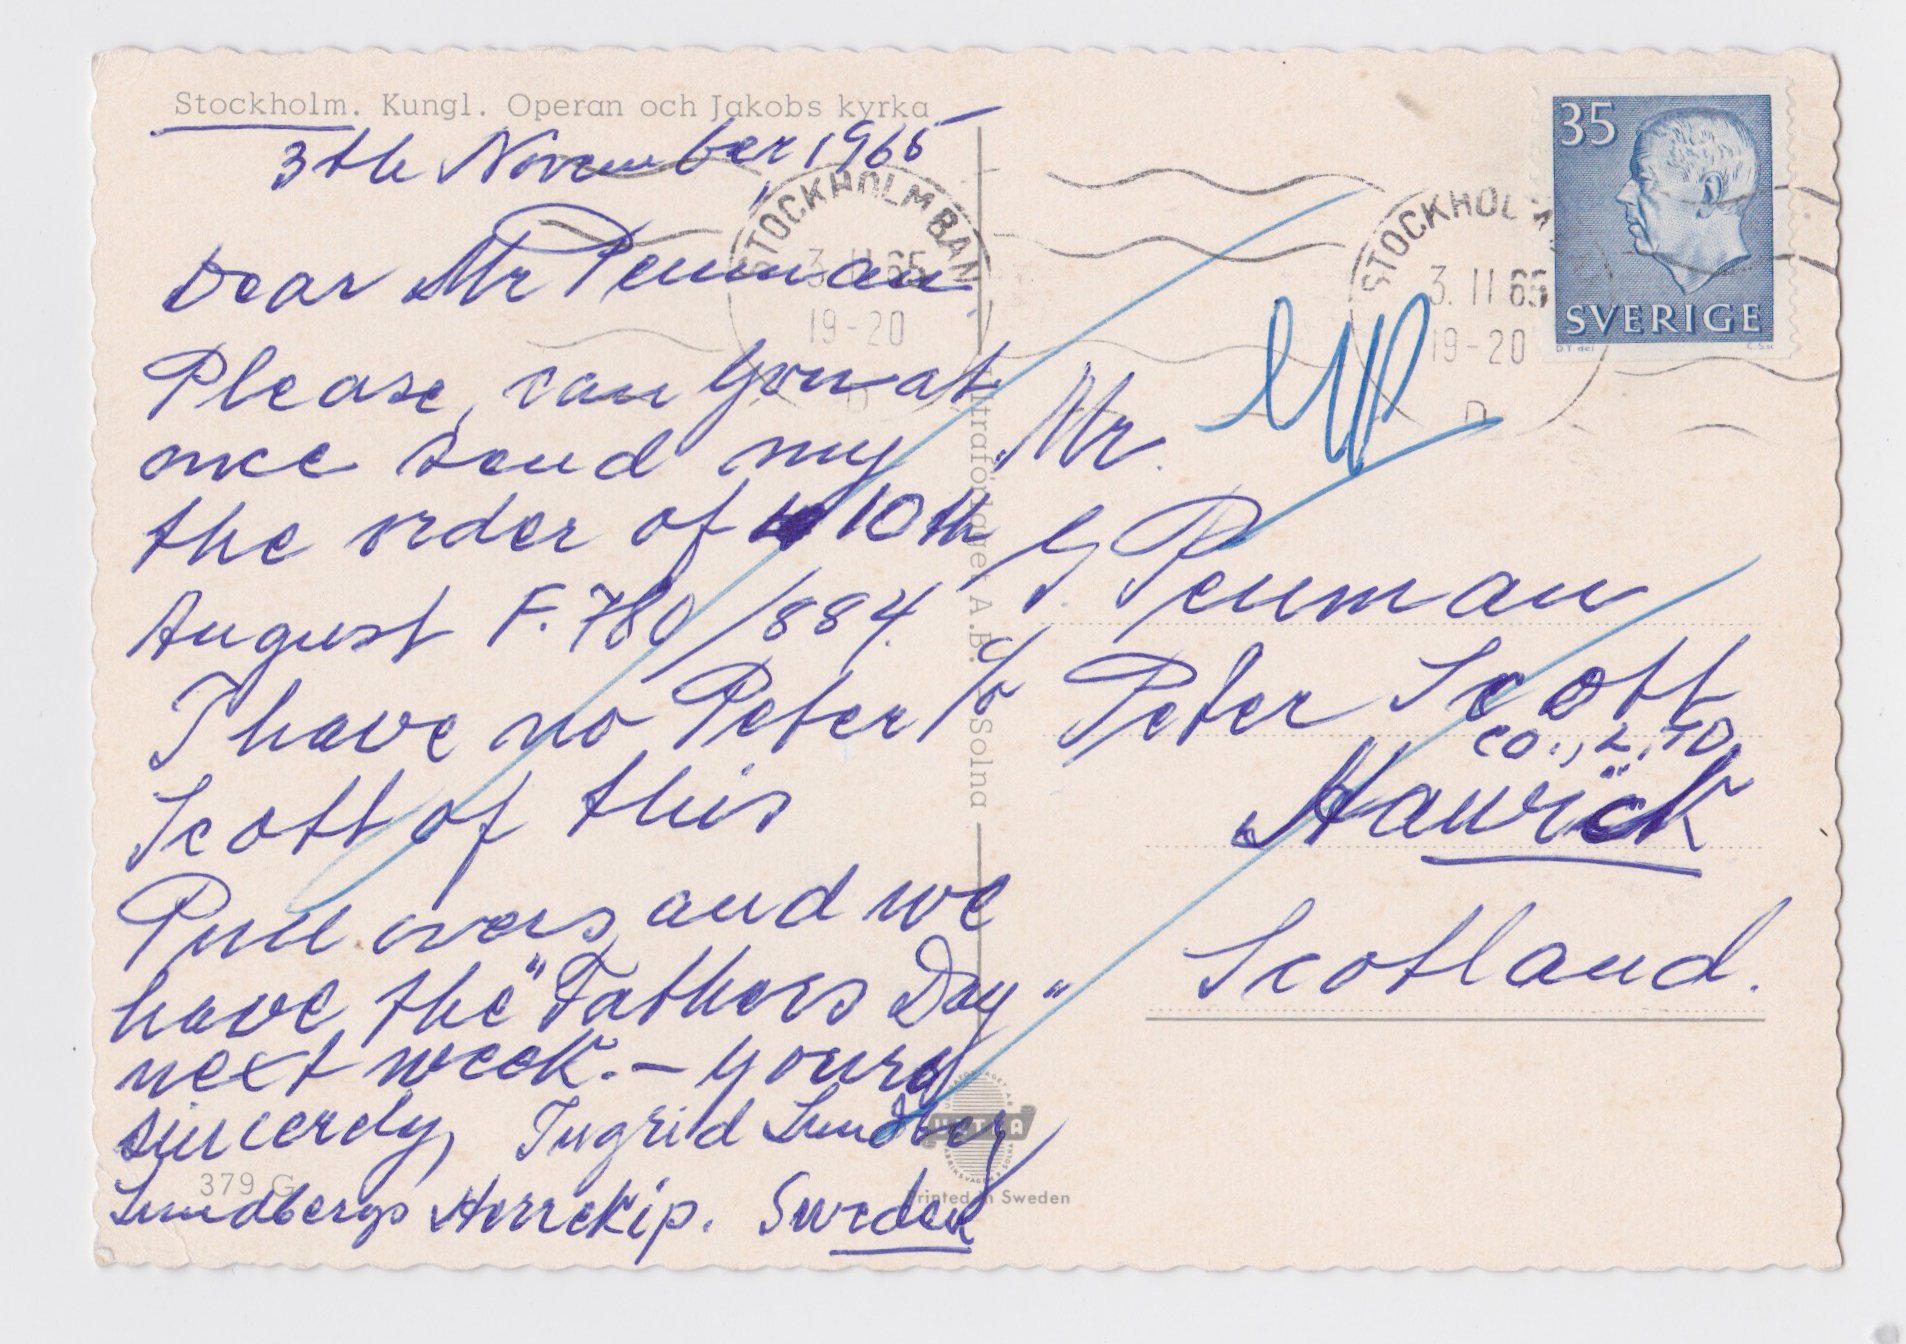 Stockholm. Kungl. Operan och Jakobs kyrka
3th November, 1965
Dear Mr Penman
Please, can you at
once send my
the order of 10th
August F. 780/884.
I have no Peter
Scott of this
Pull overs, and we
have the "Fathers Day"
next week. – yours
sincerely, Ingrid Lundberg
Lundbergs Herrekip. Sweden
379 G
Ultraförlaget A.B. Solna
ULTRA
Printed in Sweden
STOCKHOLM BAN
3.11.65
19-20
STOCKHOLM
3.11.65
19-20
D
35
SVERIGE
Mr.
G. Penman
c/o Peter Scott
co., LTD.
Hawick
Scotland.